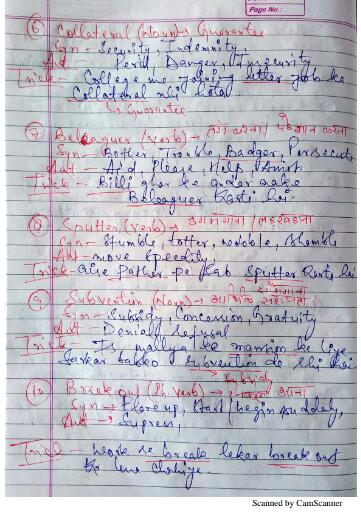 Page No.:
⑥ Collateral (Noun) → Guarantee
Syn - Security, Indemnity
Ant - Peril, Danger, Insecurity
Trick - College me joining letter job ke
Collateral nhi hota.
↳ Guarantee
⑦ Beleaguer (verb) → तंग करना / परेशान करना
Syn - Bother, Trouble Badger, Persecute
Ant - Aid, Please, Help, Assist
Trick - Billi ghar ke andar aake
Beleaguer karti hai
⑧ Sputter (verb) → डगमगाना / लड़खड़ाना
Syn - Stumble, totter, wobble, Shamble
Ant - move speedily,
Trick - Aise pathar pe kab Sputter karte hai
⑨ Subvention (Noun) → आर्थिक सहायता
Syn - Subsidy, Concession, Gratuity
Ant - Denial, refusal
Trick - Is mallya ke mansion ke liye
Sarkar babko subvention de rhi hai
↳ subsidy
⑩ Break out (Ph. verb) → आना
Syn - Flare up, Start / begin suddenly,
Ant - Supress,
Trick - work se break lekar break out
kr lena chahiye.
Scanned by CamScanner